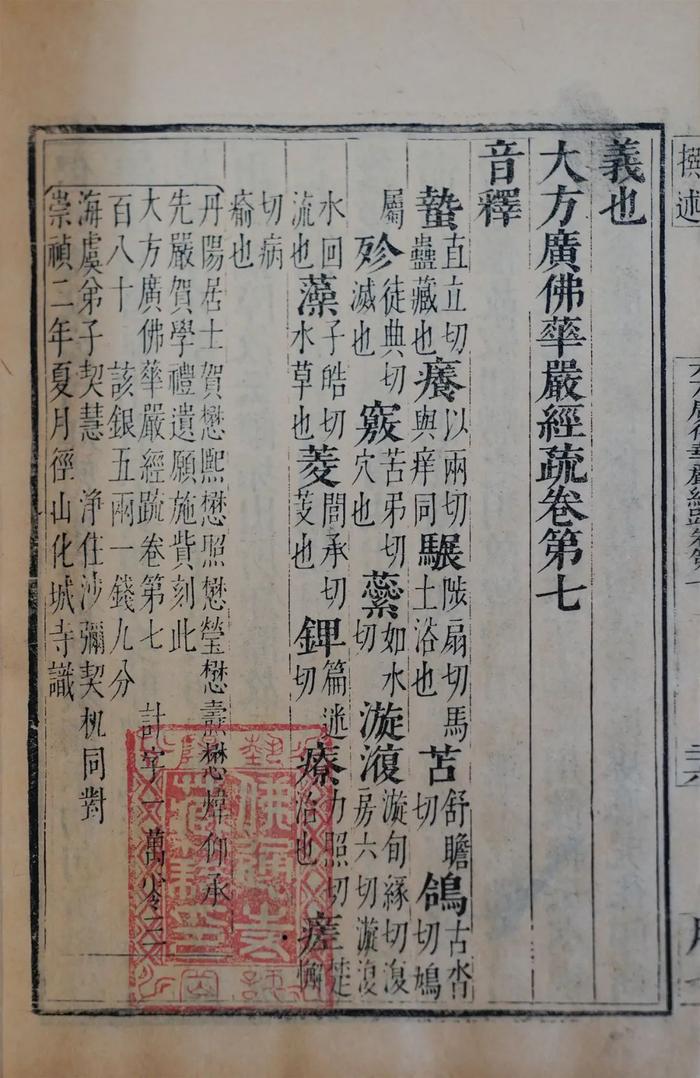 撰述
義也
大方廣佛華嚴經疏卷第七
音釋
蟄直立切蟲藏也癢以兩切與痒同𩥇陟扇切馬土浴也苫舒瞻切鴿古沓切鳩
屬殄徒典切滅也竅苦弔切穴也蘂如水切漩澓漩旬緣切澓房六切漩澓
水回流也藻子皓切水草也菱閭承切芰也錍篇迷切療力照切治也瘥楚懈
切病瘉也
丹陽居士賀懋熙懋照懋瑩懋壽懋煒仰承
先嚴賀學禮遺願施貲刻此
大方廣佛華嚴經疏卷第七 計字一萬零三
百八十 該銀五兩一錢九分
海虞弟子契慧 淨住沙彌契杌同對
崇禎二年夏月徑山化城寺識